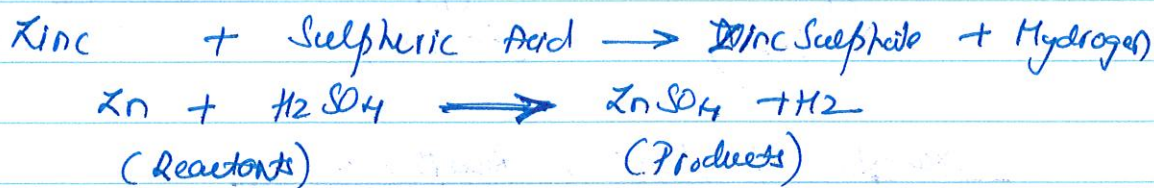 Zinc + Sulpheric Acid → Zinc Sulphate + Hydrogen
Zn + H2SO4 → ZnSO4 + H2
(Reactants) (Products)